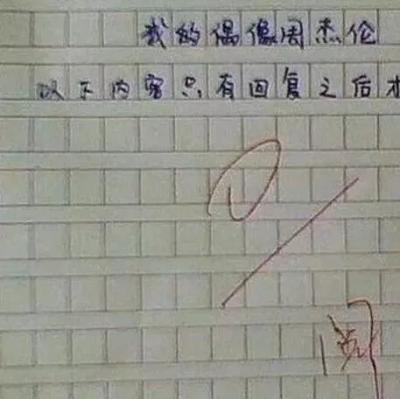 我的偶像周杰伦
以下内容只有回复之后才
0
阅